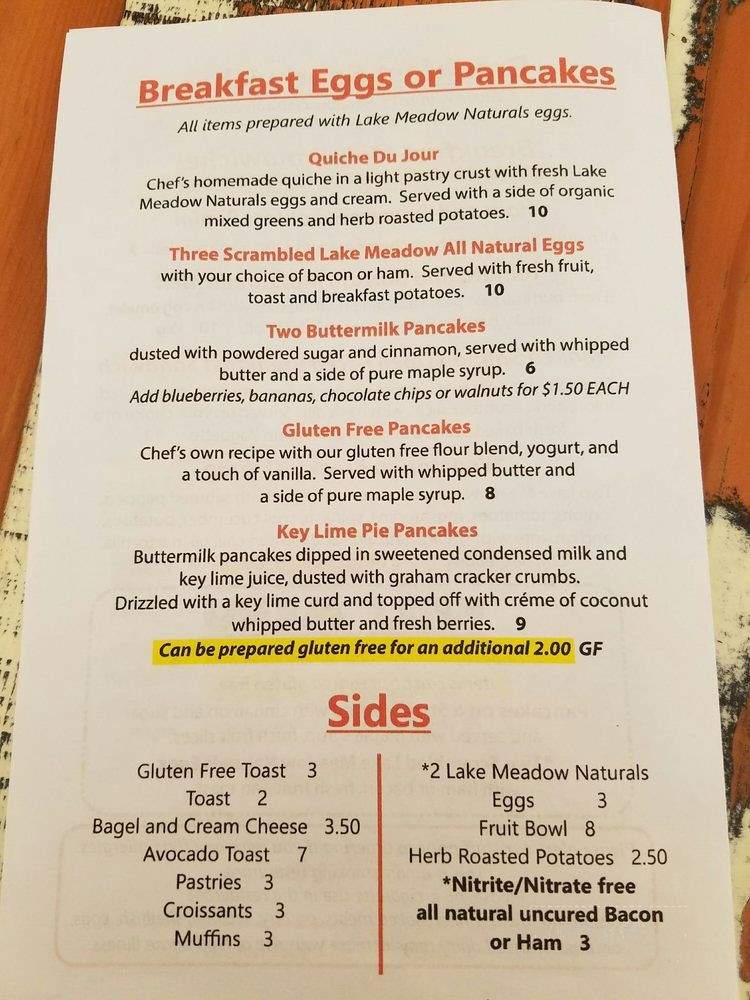 Breakfast Eggs or Pancakes
All items prepared with Lake Meadow Naturals eggs.
Quiche Du Jour
Chef's homemade quiche in a light pastry crust with fresh Lake
Meadow Naturals eggs and cream. Served with a side of organic
mixed greens and herb roasted potatoes. 10
Three Scrambled Lake Meadow All Natural Eggs
with your choice of bacon or ham. Served with fresh fruit,
toast and breakfast potatoes. 10
Two Buttermilk Pancakes
dusted with powdered sugar and cinnamon, served with whipped
butter and a side of pure maple syrup. 6
Add blueberries, bananas, chocolate chips or walnuts for $1.50 EACH
Gluten Free Pancakes
Chef's own recipe with our gluten free flour blend, yogurt, and
a touch of vanilla. Served with whipped butter and
a side of pure maple syrup. 8
Key Lime Pie Pancakes
Buttermilk pancakes dipped in sweetened condensed milk and
key lime juice, dusted with graham cracker crumbs.
Drizzled with a key lime curd and topped off with créme of coconut
whipped butter and fresh berries. 9
Can be prepared gluten free for an additional 2.00 GF
Sides
Gluten Free Toast 3
Toast 2
Bagel and Cream Cheese 3.50
Avocado Toast 7
Pastries 3
Croissants 3
Muffins 3
*2 Lake Meadow Naturals
Eggs 3
Fruit Bowl 8
Herb Roasted Potatoes 2.50
*Nitrite/Nitrate free
all natural uncured Bacon
or Ham 3